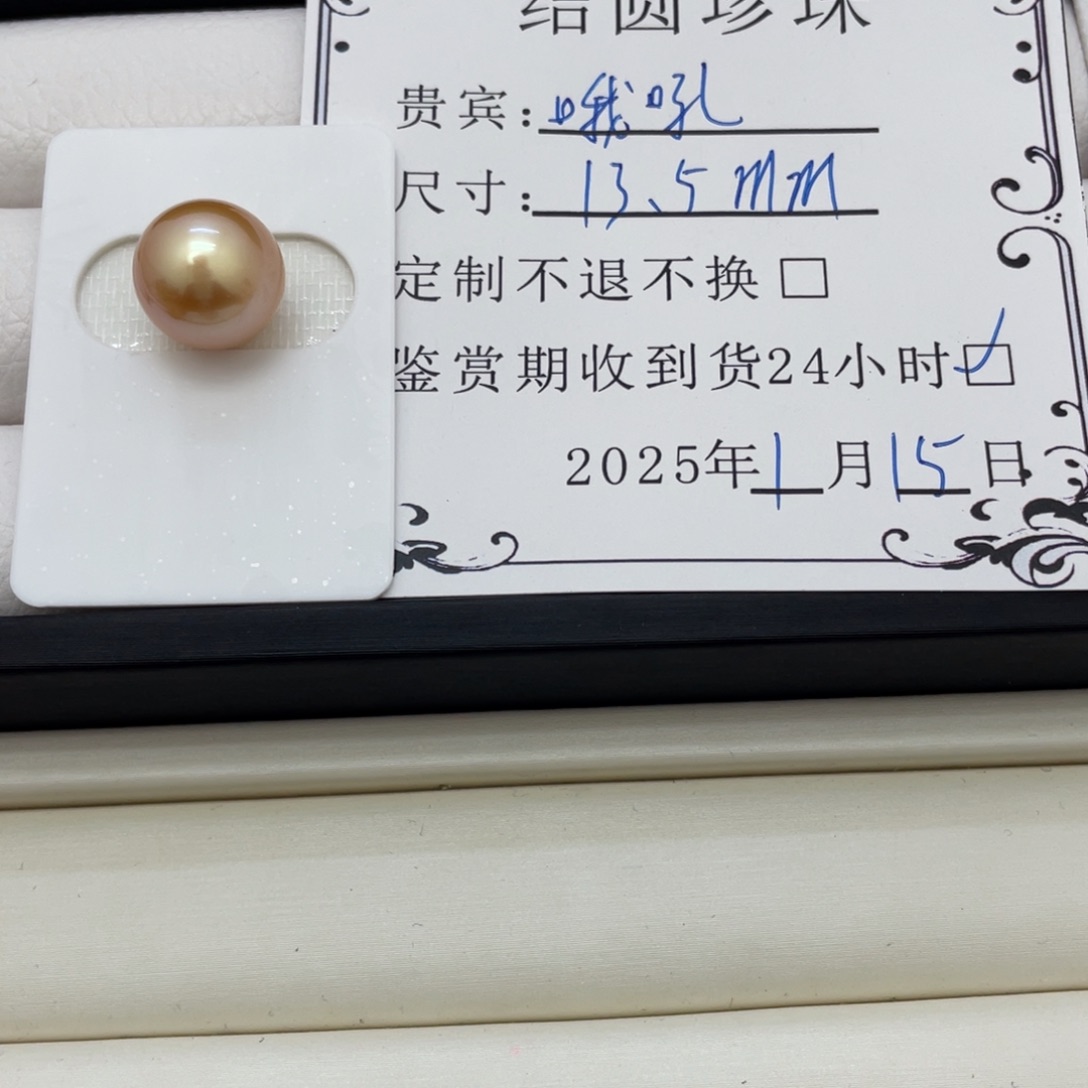 结圆珍珠
贵宾：哦吼
尺寸：13.5mm
定制不退不换□
鉴赏期收到货24小时☑
2025年1月15日